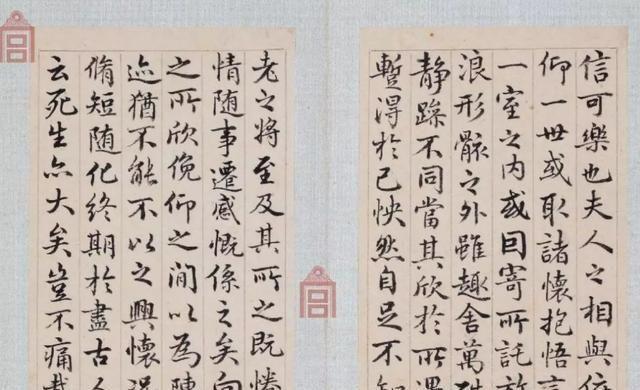 信可樂也夫人之相與俯
仰一世或取諸懷抱悟言
一室之內或因寄所託放
浪形骸之外雖趣舍萬殊
靜躁不同當其欣於所遇
暫得於己怏然自足不知
老之將至及其所之既惓
情隨事遷感慨係之矣向
之所欣俛仰之間以為陳
迹猶不能不以之興懷況
脩短隨化終期於盡古人
云死生亦大矣豈不痛哉